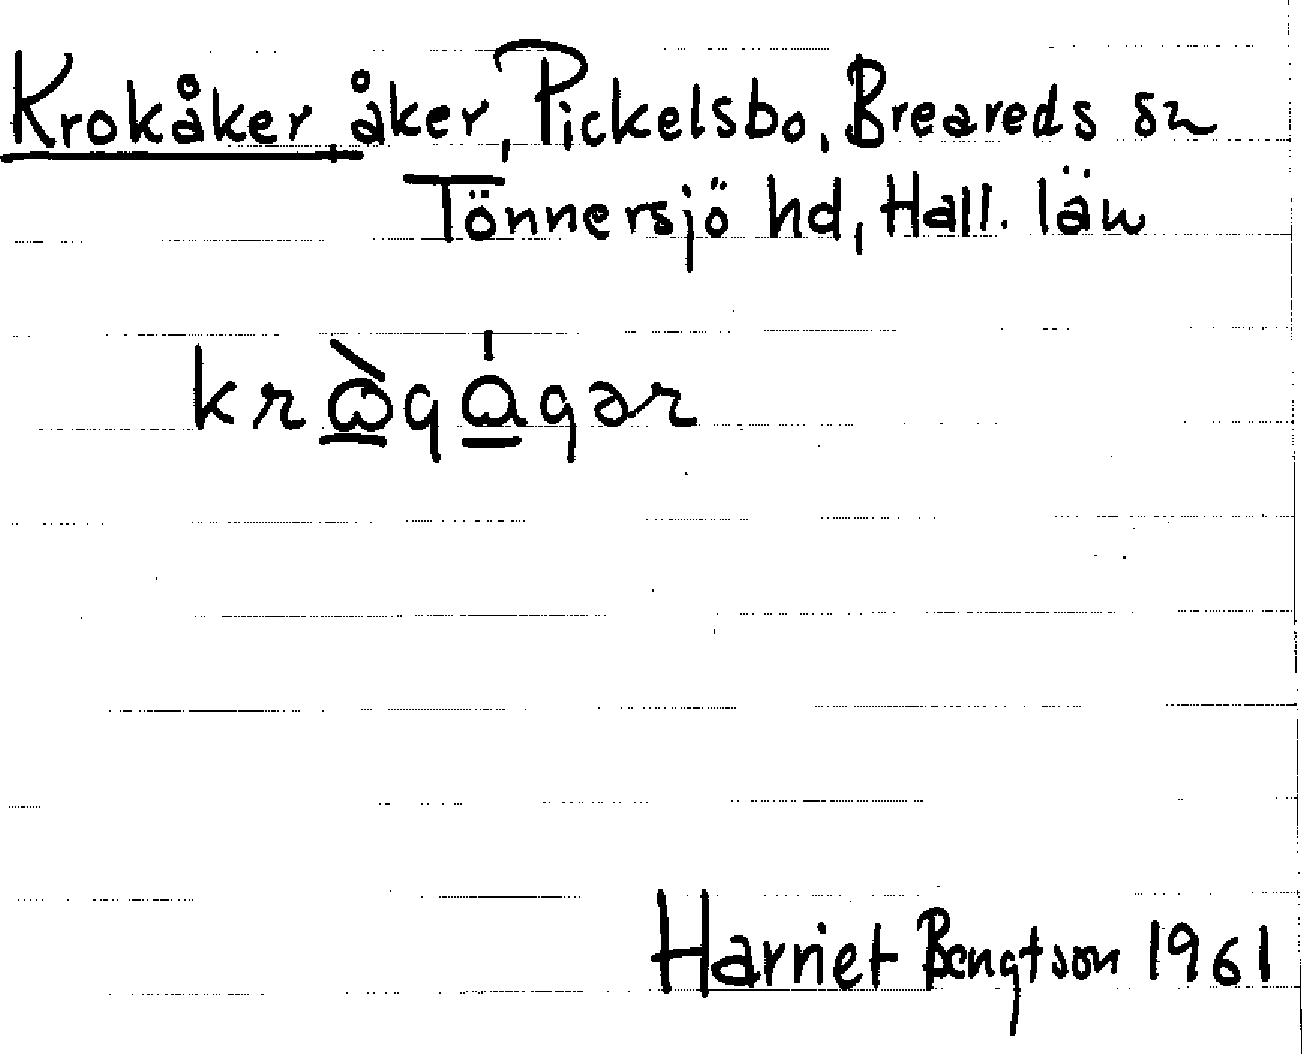 Krokåker åker, Pickelsbo, Breareds sn
Tönnersjö hd, Hall. län
Harriet Bengtson 1961